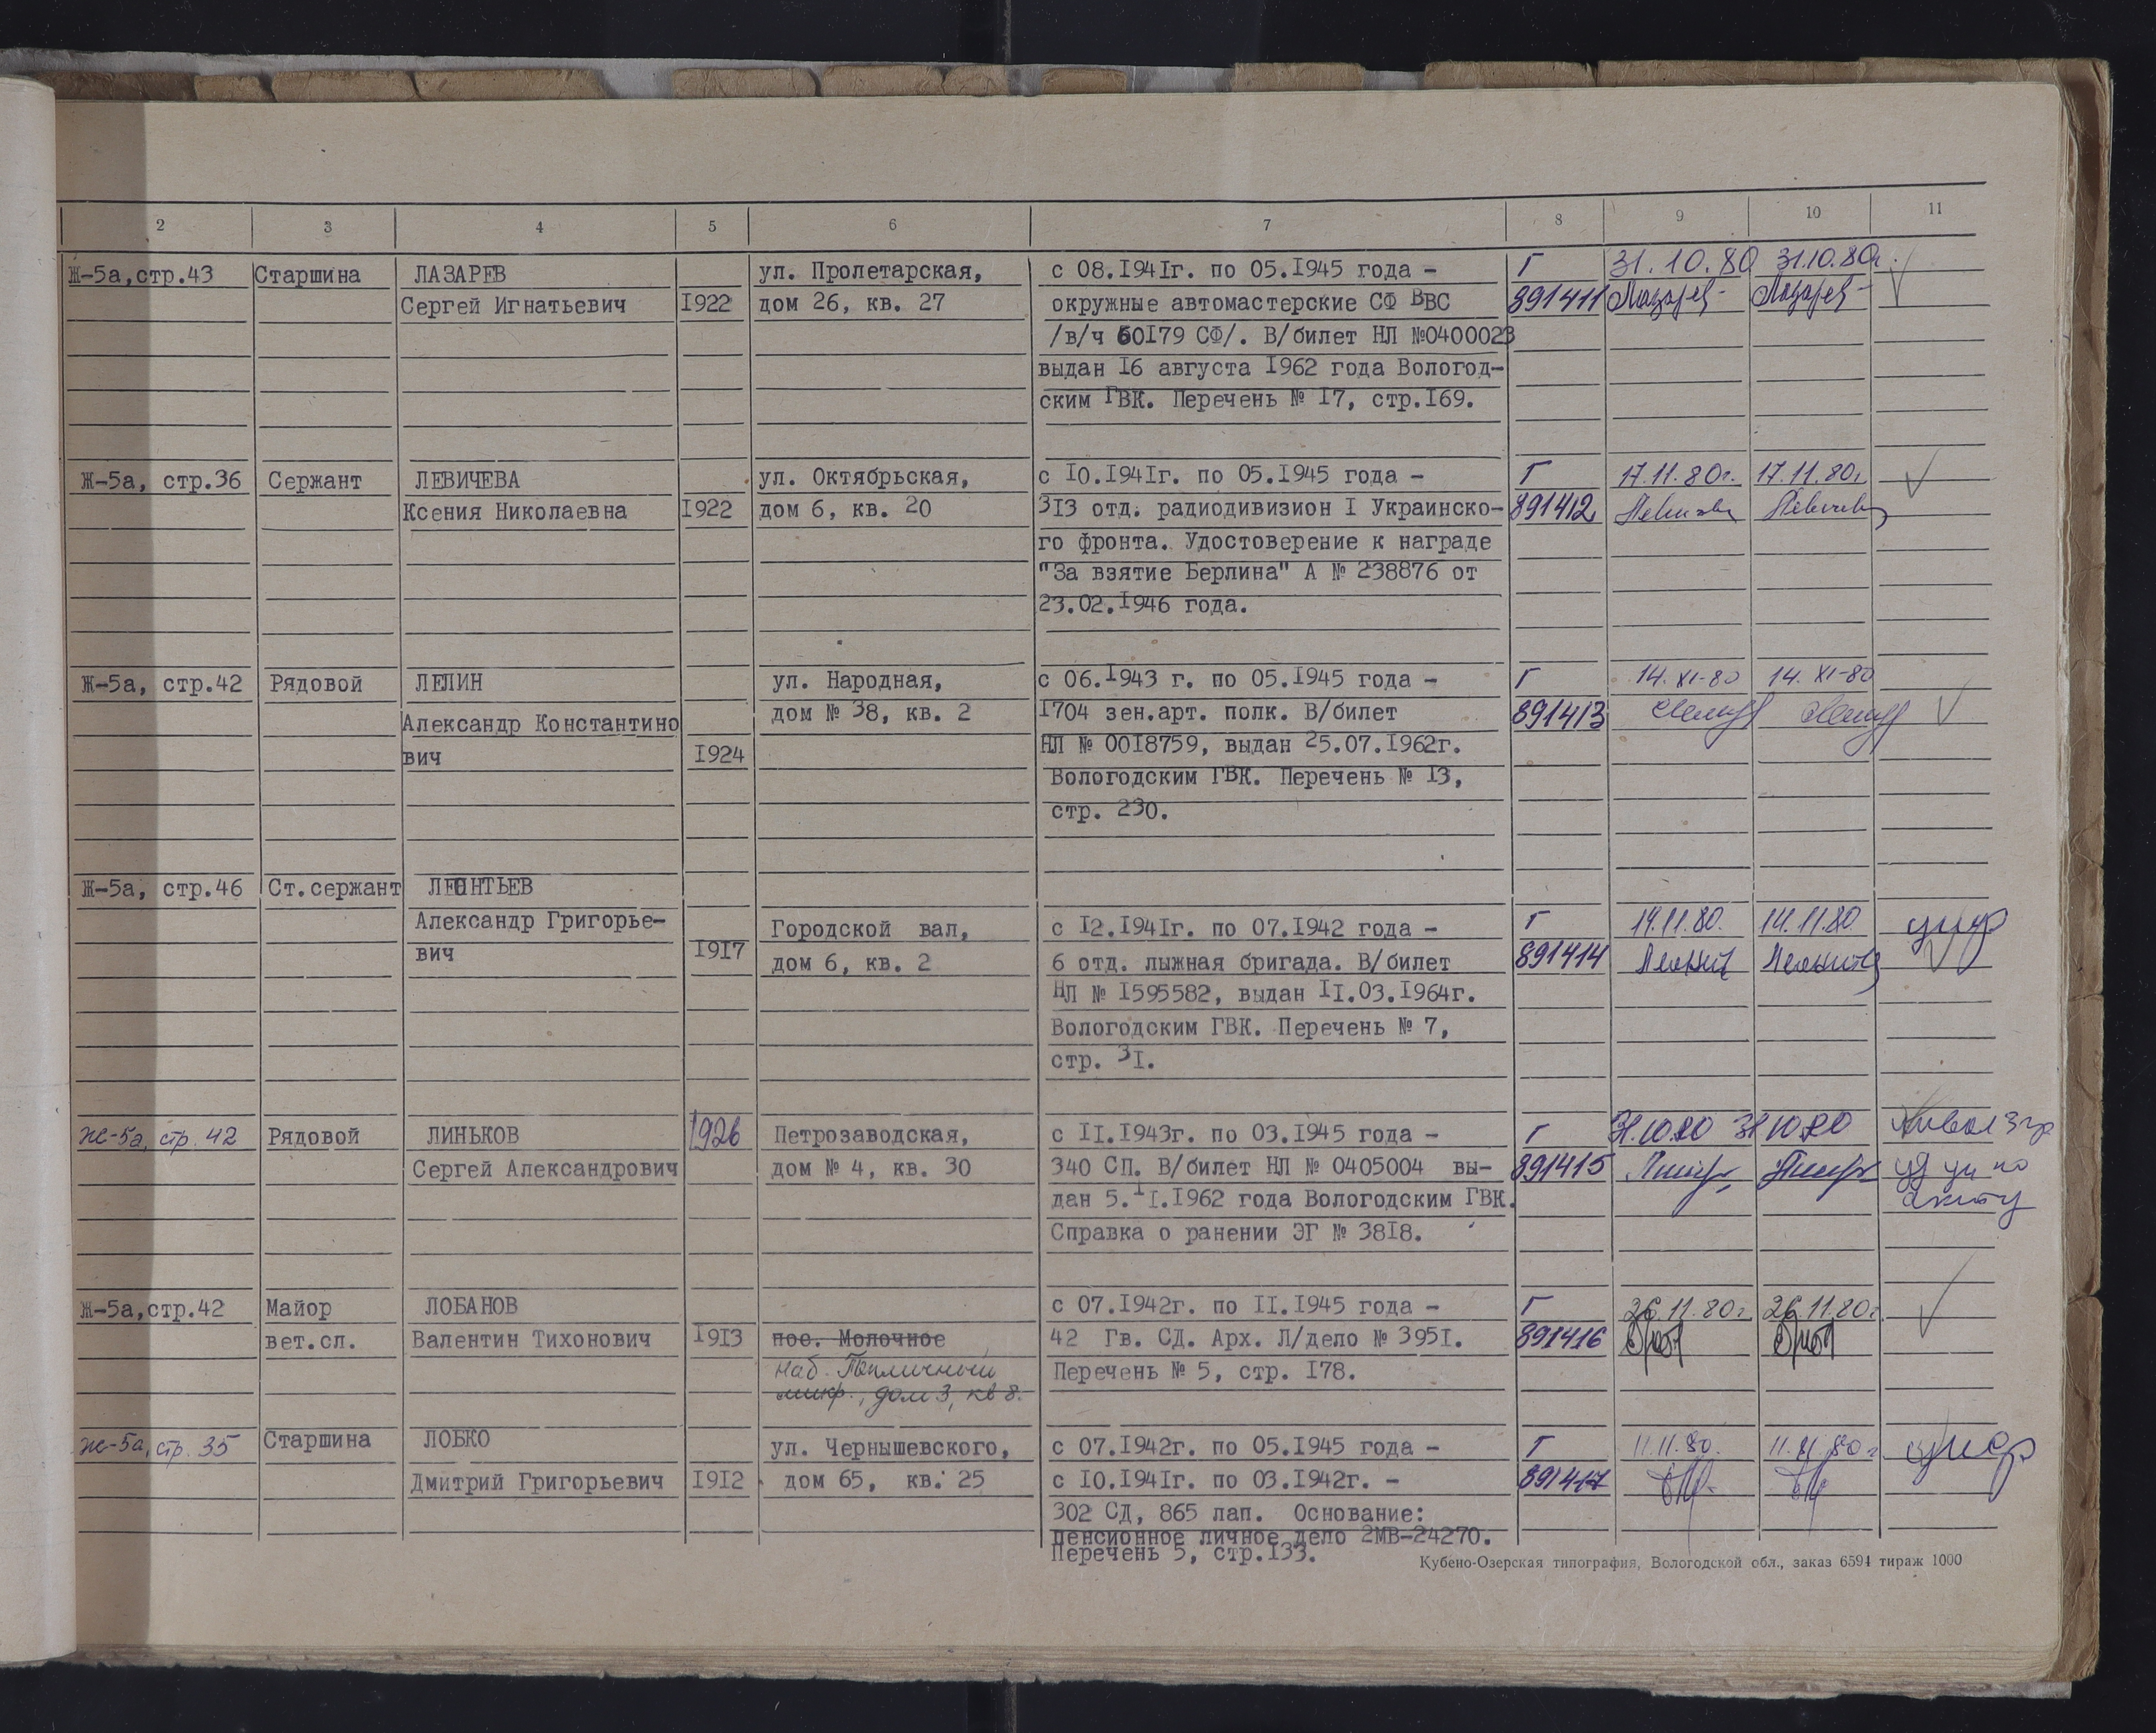 2 3 4 5 6 7 8 9 10 11
Ж-5а,стр.43 Старшина ЛАЗАРЕВ ул. Пролетарская, с 08.1941г. по 05.1945 года - Г 31.10.80 31.10.80г.
Сергей Игнатьевич 1922 дом 26, кв. 27 окружные автомастерские СФ ВВС 891411 Лазарев Лазарев
/в/ч 60179 СФ/. В/билет НЛ №0400023
выдан 16 августа 1962 года Вологод-
ским ГВК. Перечень № 17, стр.169.
Ж-5а, стр.36 Сержант ЛЕВИЧЕВА ул. Октябрьская, с 10.1941г. по 05.1945 года - Г 17.11.80г. 17.11.80г
Ксения Николаевна 1922 дом 6, кв. 20 313 отд. радиодивизион I Украинско- 891412
го фронта. Удостоверение к награде
"За взятие Берлина" А № 238876 от
23.02.1946 года.
Ж-5а, стр.42 Рядовой ЛЕПИН ул. Народная, с 06.1943 г. по 05.1945 года - Г 14.XI-80 14.XI-80
Александр Константино дом № 38, кв. 2 1704 зен.арт. полк. В/билет 891413
вич 1924 НЛ № 0018759, выдан 25.07.1962г.
Вологодским ГВК. Перечень № 13,
стр. 230.
Ж-5а, стр.46 Ст.сержант ЛЕОНТЬЕВ
Александр Григорье- Городской вал, с 12.1941г. по 07.1942 года - Г 14.11.80. 14.11.80
вич 1917 дом 6, кв. 2 6 отд. лыжная бригада. В/билет 891414
НЛ № 1595582, выдан 11.03.1964г.
Вологодским ГВК. Перечень № 7,
стр. 31.
Ж-5а, стр. 42 Рядовой ЛИНЬКОВ 1926 Петрозаводская, с 11.1943г. по 03.1945 года - Г 31.10.80 31.10.80
Сергей Александрович дом № 4, кв. 30 340 СП. В/билет НЛ № 0405004 вы- 891415
дан 5.11.1962 года Вологодским ГВК.
Справка о ранении ЭГ № 3818.
Ж-5а,стр.42 Майор ЛОБАНОВ с 07.1942г. по 11.1945 года - Г 26.11.80г. 26.11.80г.
вет.сл. Валентин Тихонович 1913 пос. Молочное 42 Гв. СД. Арх. Л/дело № 3951. 891416
наб. Перечень № 5, стр. 178.
мкр., дом 3, кв 8.
Ж-5а, стр. 35 Старшина ЛОБКО ул. Чернышевского, с 07.1942г. по 05.1945 года - Г 11.11.80. 11.11.80г
Дмитрий Григорьевич 1912 дом 65, кв. 25 с 10.1941г. по 03.1942г. - 891417
302 СД, 865 лап. Основание:
пенсионное личное дело 2МВ-24270.
Перечень 5, стр.133.
Кубено-Озерская типография, Вологодской обл., заказ 6594 тираж 1000